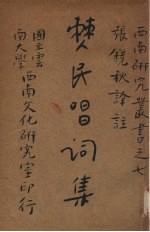 西南研究叢書之七
張鏡秋譯註
僰民唱词集
國立雲南大學
西南文化研究室印行